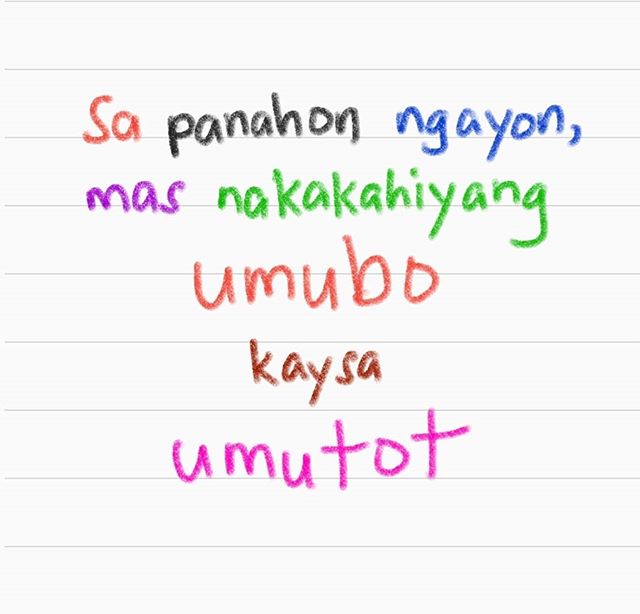 Sa panahon ngayon,
mas nakakahiyang
umubo
kaysa
umutot